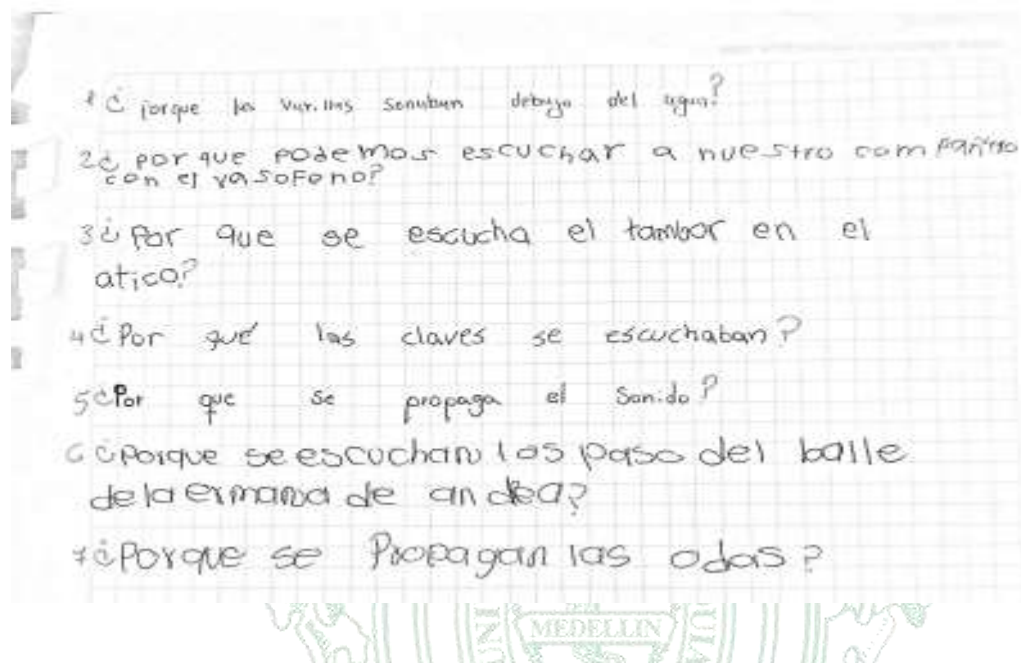 1 ¿ porque las varillas sonaban debajo del agua?
2¿ por que podemos escuchar a nuestro compañero
con el vasofono?
3¿ Por que se escucha el tambor en el
atico?
4¿Por qué las claves se escuchaban?
5¿Por que se propaga el Sonido?
6 ¿Porque se escuchan los paso del baile
de la ermana de andea?
7¿Porque se Propagan las odas?
MEDELLIN